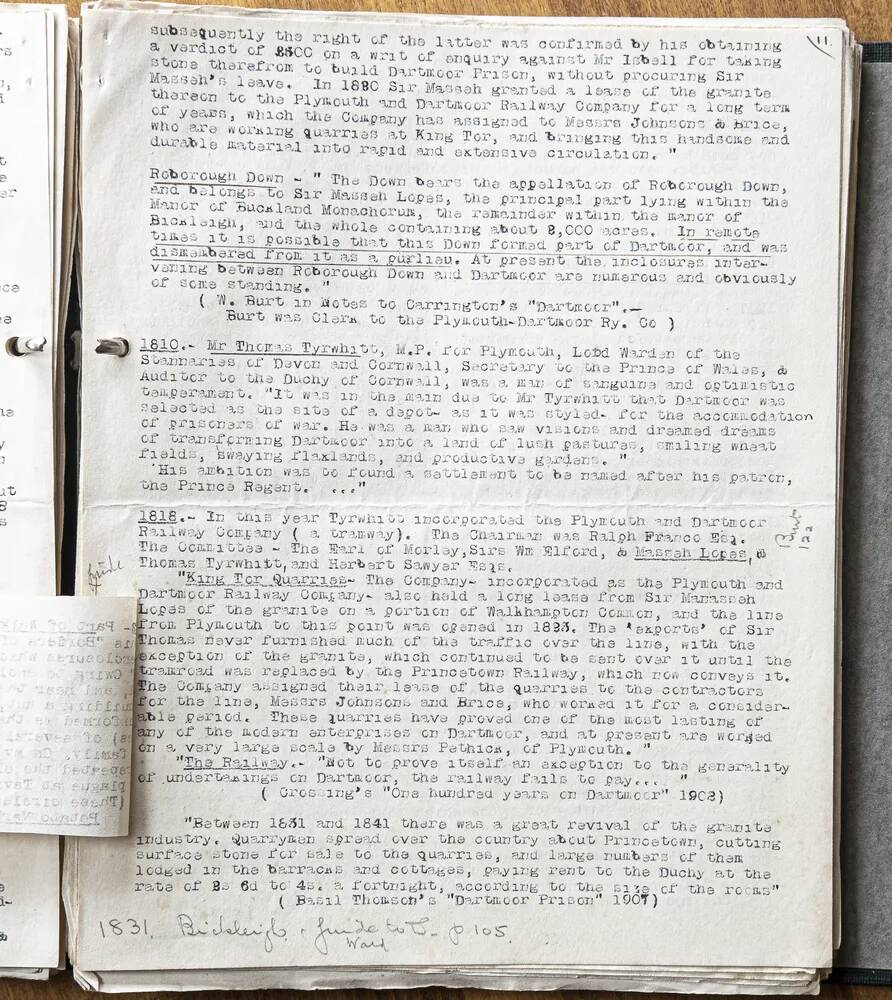 11.
subsequently the right of the latter was confirmed by his obtaining
a verdict of £500 on a writ of enquiry against Mr Isbell for taking
stone therefrom to build Dartmoor Prison, without procuring Sir
Masseh's leave. In 1820 Sir Masseh granted a lease of the granite
thereon to the Plymouth and Dartmoor Railway Company for a long term
of years, which the Company has assigned to Messrs Johnsons & Brice,
who are working quarries at King Tor, and bringing this handsome and
durable material into rapid and extensive circulation. "
Roborough Down - " The Down bears the appellation of Roborough Down,
and belongs to Sir Masseh Lopes, the principal part lying within the
Manor of Buckland Monachorum, the remainder within the manor of
Bickleigh, and the whole containing about 2,000 acres. In remote
times it is possible that this Down formed part of Dartmoor, and was
dismembered from it as a purlieu. At present the inclosures inter-
vening between Roborough Down and Dartmoor are numerous and obviously
of some standing. "
( W. Burt in Notes to Carrington's "Dartmoor".—
Burt was Clerk to the Plymouth-Dartmoor Ry. Co )
1810.- Mr Thomas Tyrwhitt, M.P. for Plymouth, Lord Warden of the
Stannaries of Devon and Cornwall, Secretary to the Prince of Wales, &
Auditor to the Duchy of Cornwall, was a man of sanguine and optimistic
temperament. "It was in the main due to Mr Tyrwhitt that Dartmoor was
selected as the site of a depot- as it was styled- for the accommodation
of prisoners of war. He was a man who saw visions and dreamed dreams
of transforming Dartmoor into a land of lush pastures, smiling wheat
fields, swaying flaxlands, and productive gardens. "
'His ambition was to found a settlement to be named after his patron,
the Prince Regent. ..."
1818.- In this year Tyrwhitt incorporated the Plymouth and Dartmoor
Railway Company ( a tramway). The Chairman was Ralph Franco Esq.
The Committee - The Earl of Morley, Sirs Wm Elford, & Masseh Lopes, &
Thomas Tyrwhitt, and Herbert Sawyer Esqs.
Burt
122
"King Tor Quarries- The Company- incorporated as the Plymouth and
Dartmoor Railway Company- also held a long lease from Sir Manasseh
Lopes of the granite on a portion of Walkhampton Common, and the line
from Plymouth to this point was opened in 1823. The 'exports' of Sir
Thomas never furnished much of the traffic over the line, with the
exception of the granite, which continued to be sent over it until the
tramroad was replaced by the Princetown Railway, which now conveys it.
The Company assigned their lease of the quarries to the contractors
for the line, Messrs Johnsons and Brice, who worked it for a consider-
able period. These quarries have proved one of the most lasting of
any of the modern enterprises on Dartmoor, and at present are worked
on a very large scale by Messrs Pethick, of Plymouth. "
"The Railway.- "Not to prove itself an exception to the generality
of undertakings on Dartmoor, the railway fails to pay... "
( Crossing's "One hundred years on Dartmoor" 1902)
"Between 1831 and 1841 there was a great revival of the granite
industry. Quarrymen spread over the country about Princetown, cutting
surface stone for sale to the quarries, and large numbers of them
lodged in the barracks and cottages, paying rent to the Duchy at the
rate of 2s 6d to 4s. a fortnight, according to the size of the rooms"
( Basil Thomson's "Dartmoor Prison" 1907)
1831. Bickleigh. Guide to p 105.
Ward